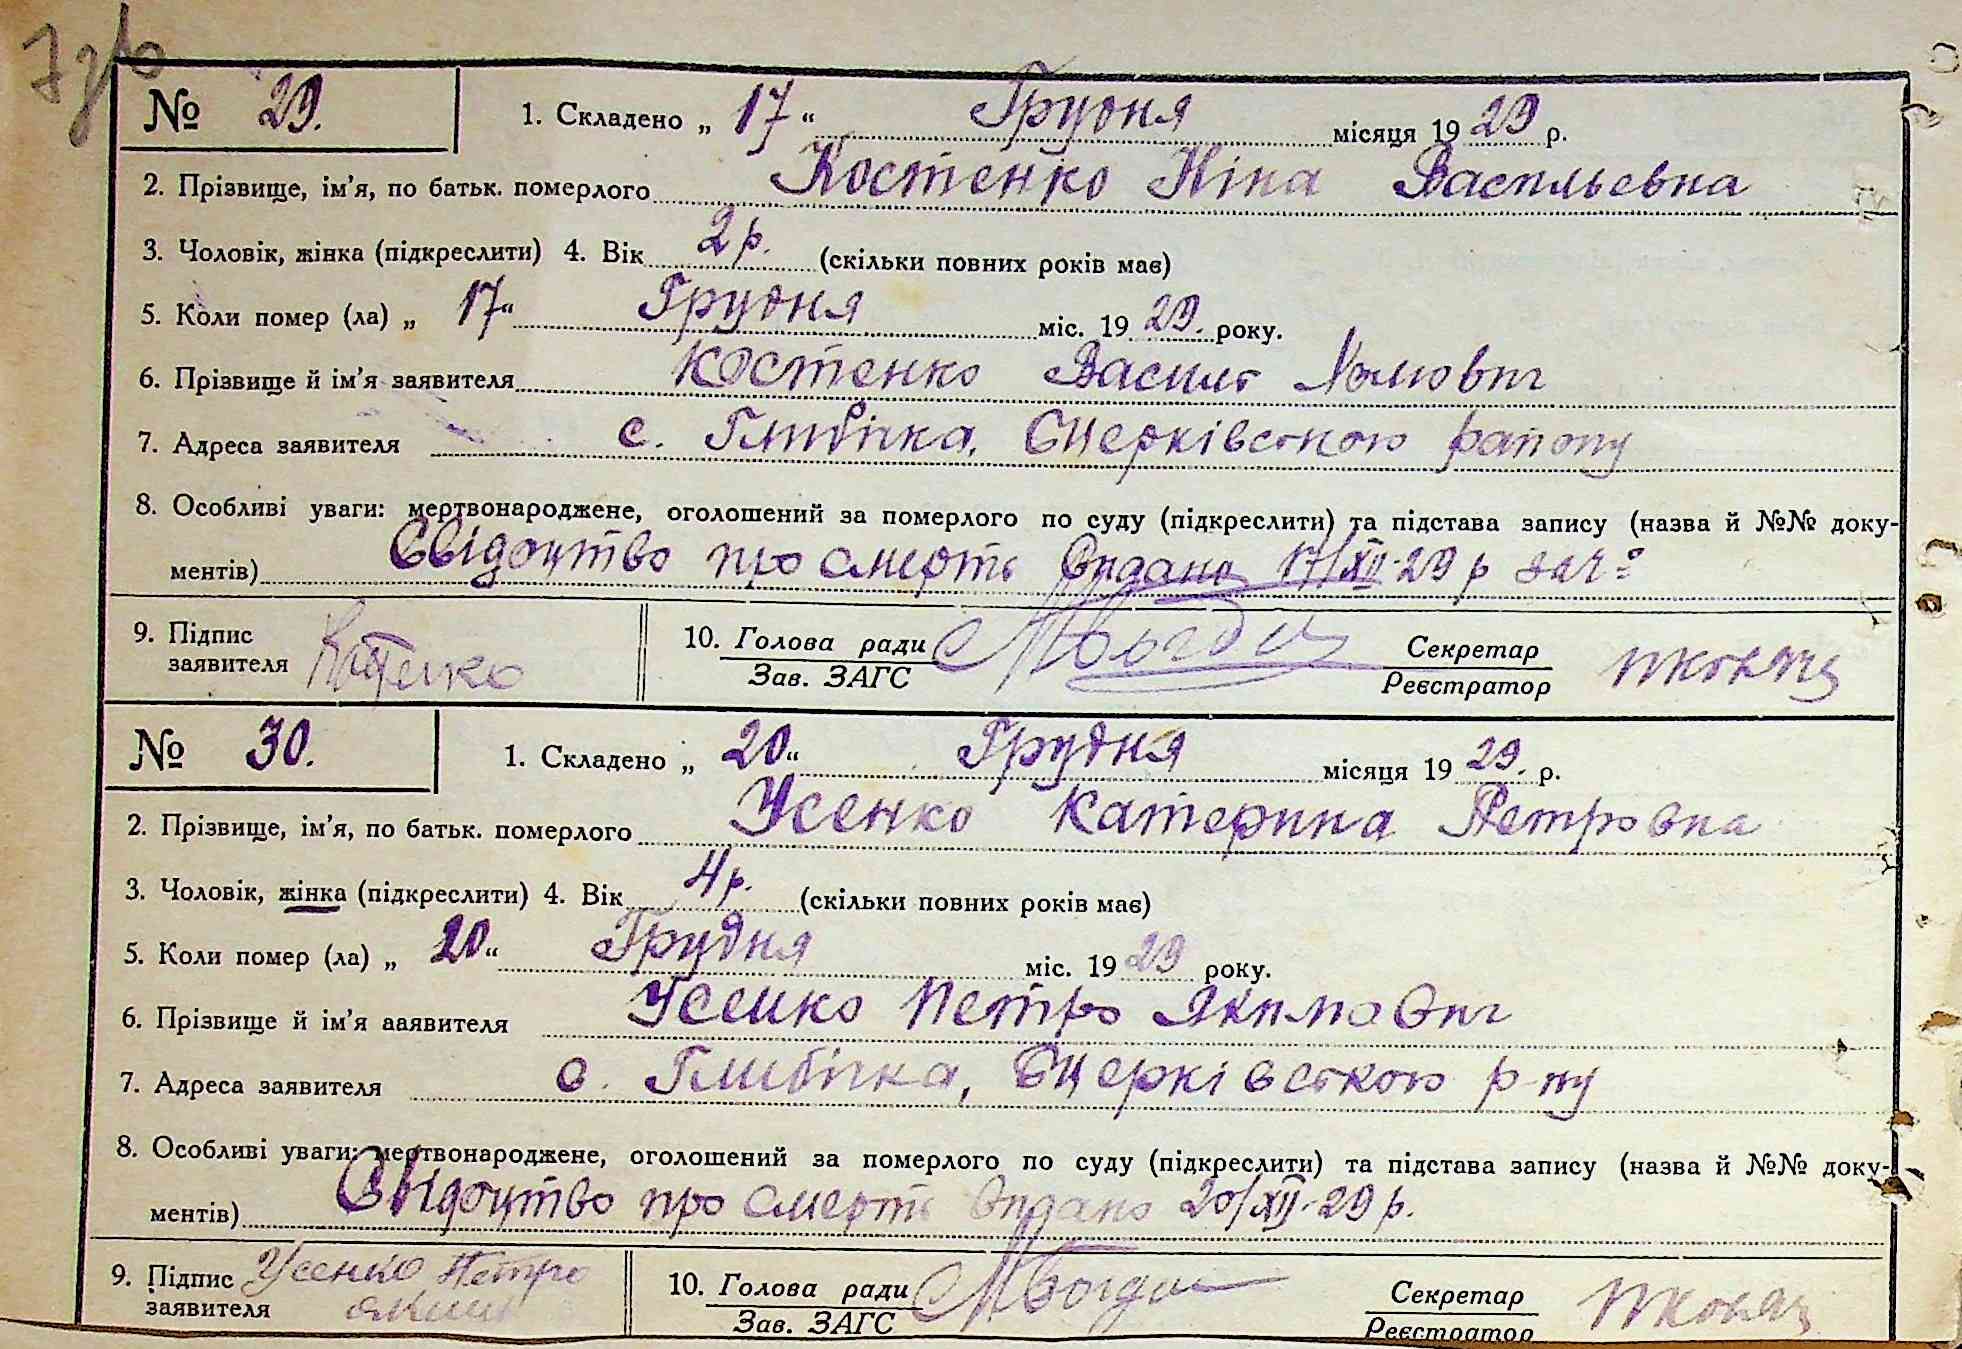 № 29. 1. Складено „ 17 “ Грудня місяця 19 29 р.
2. Прізвище, ім'я, по батьк. померлого Костенко Ніна Васильевна
3. Чоловік, жінка (підкреслити) 4. Вік 2 р. (скільки повних років має)
5. Коли помер (ла) „ 17 “ Грудня міс. 19 29. року.
6. Прізвище й ім'я заявителя Костенко Василь
7. Адреса заявителя с. Глибічка, Бцерківського району
8. Особливі уваги: мертвонароджене, оголошений за померлого по суду (підкреслити) та підстава запису (назва й №№ доку-
ментів) Свідоцтво про смерть видано 17/XII-29 р
9. Підпис
заявителя
10. Голова ради
Зав. ЗАГС
Секретар
Реєстратор
№ 30. 1. Складено „ 20 “ Грудня місяця 19 29. р.
2. Прізвище, ім'я, по батьк. померлого Усенко Катерина Петровна
3. Чоловік, жінка (підкреслити) 4. Вік 4 р. (скільки повних років має)
5. Коли помер (ла) „ 20 “ Грудня міс. 19 29 року.
6. Прізвище й ім'я ааявителя Усенко Петро Якимович
7. Адреса заявителя с. Глибічка, Бцерківського р-ну
8. Особливі уваги: мертвонароджене, оголошений за померлого по суду (підкреслити) та підстава запису (назва й №№ доку-
ментів) Свідоцтво про смерть видано 20/XII-29 р.
9. Підпис Усенко Петро
заявителя
10. Голова ради
Зав. ЗАГС
Секретар
Реєстратор